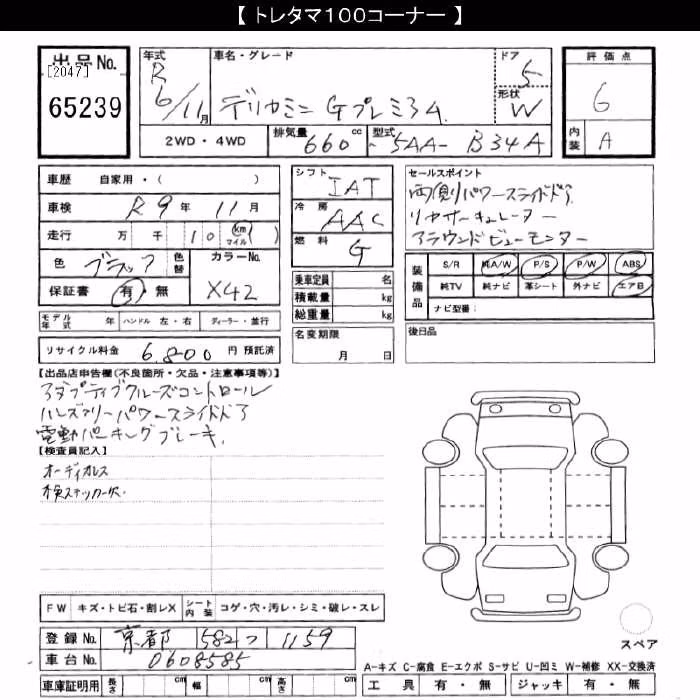 【 トレタマ100コーナー 】
出品No.
[2047]
65239
年式
R
6/11月
車名・グレード
デリカミニ Gプレミアム
ドア
5
形状
W
2WD・4WD
排気量
660 cc
型式
5AA- B34A
評価点
6
内装
A
車歴 自家用・( )
車検 R9年 11月
走行 万 千 10 (km マイル)
色 ブラック 色替
カラーNo.
X42
保証書 有・無
モデル年式 年 ハンドル 左・右 ディーラー・並行
リサイクル料金 6,800 円 預託済
シフト
IAT
冷房
AAC
燃料
G
乗車定員 名
積載量 kg
総重量 kg
名変期限
月 日
セールスポイント
両側パワースライドドア
リヤサーキュレーター
アラウンドビューモニター
装備品
S/R 純A/W P/S P/W ABS
純TV 純ナビ 革シート 外ナビ エアB
ナビ型番:
後日品
【出品店申告欄(不良箇所・欠品・注意事項等)】
アダプティブクルーズコントロール
ハンズフリーパワースライドドア
電動パーキングブレーキ
【検査員記入】
オーディオレス
検ステッカー欠
FW キズ・トビ石・割レX シート内装 コゲ・穴・汚レ・シミ・破レ・スレ
登録No. 京都 582 つ 1159
車台No. 0608585
車庫証明用 長さ cm 幅 cm 高さ cm
スペア
A-キズ C-腐食 E-エクボ S-サビ U-凹ミ W-補修 XX-交換済
工具 有・無 ジャッキ 有・無